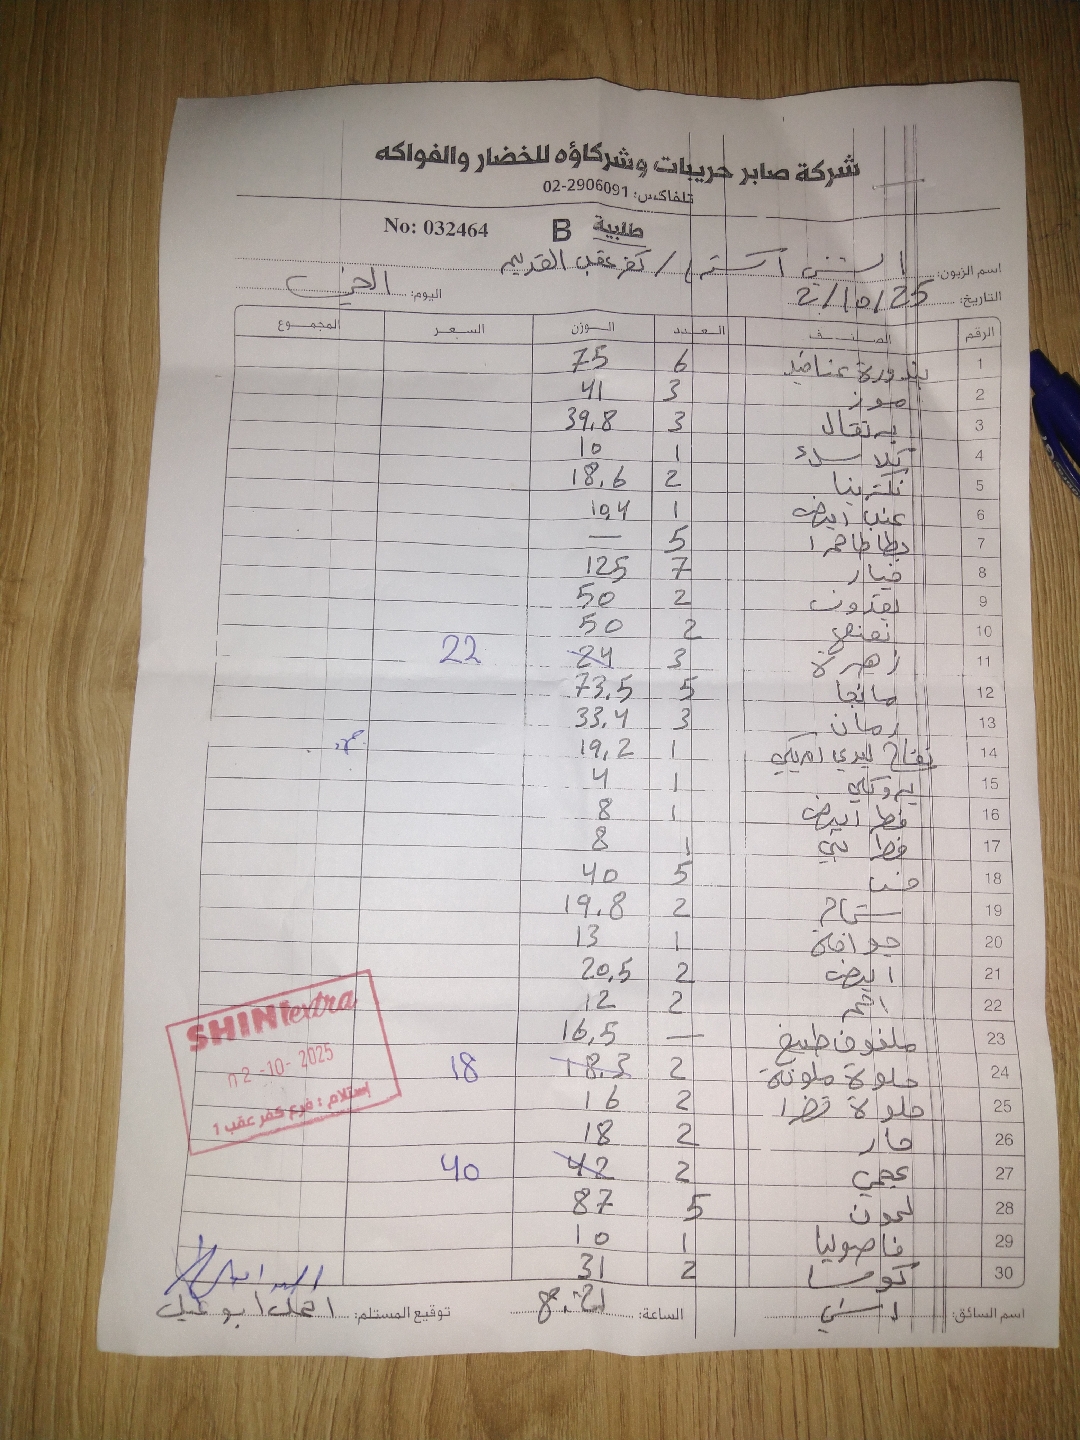 شركة صابر حريبات وشركاؤه للخضار والفواكه
تلفاكس: 02-2906091
No: 032464 B طلبية
اسم الزبون: الشني اكسترا / كفر عقب القديم
التاريخ: 2/10/25 اليوم:
الرقم الصنف العدد الوزن السعر المجموع
1 بندورة عناقيد 6 75
2 موز 3 41
3 برتقال 3 39.8
4 1 10
5 نكترينا 2 18.6
6 عنب ابيض 1 10.4
7 بطاطا حمرا 5 —
8 خيار 7 125
9 بقدونس 2 50
10 نعنع 2 50
11 زهرة 3 24 22
12 مانجا 5 73.5
13 رمان 3 33.4
14 تفاح ليدي امريكي 1 19.2
15 بروكلي 1 4
16 فطر ابيض 1 8
17 فطر بني 1 8
18 خس 5 40
19 2 19.8
20 جوافة 1 13
21 ابيض 2 20.5
22 احمر 2 12
23 ملفوف طبيخ — 16.5
24 حلوة ملونة 2 18.3 18
25 حلوة خضرا 2 16
26 حار 2 18
27 عجمي 2 42 40
28 ليمون 5 87
29 فاصوليا 1 10
30 كوسا 2 31
SHINI extra
02-10-2025
إستلام : فرع كفر عقب 1
اسم السائق: الساعة: توقيع المستلم: